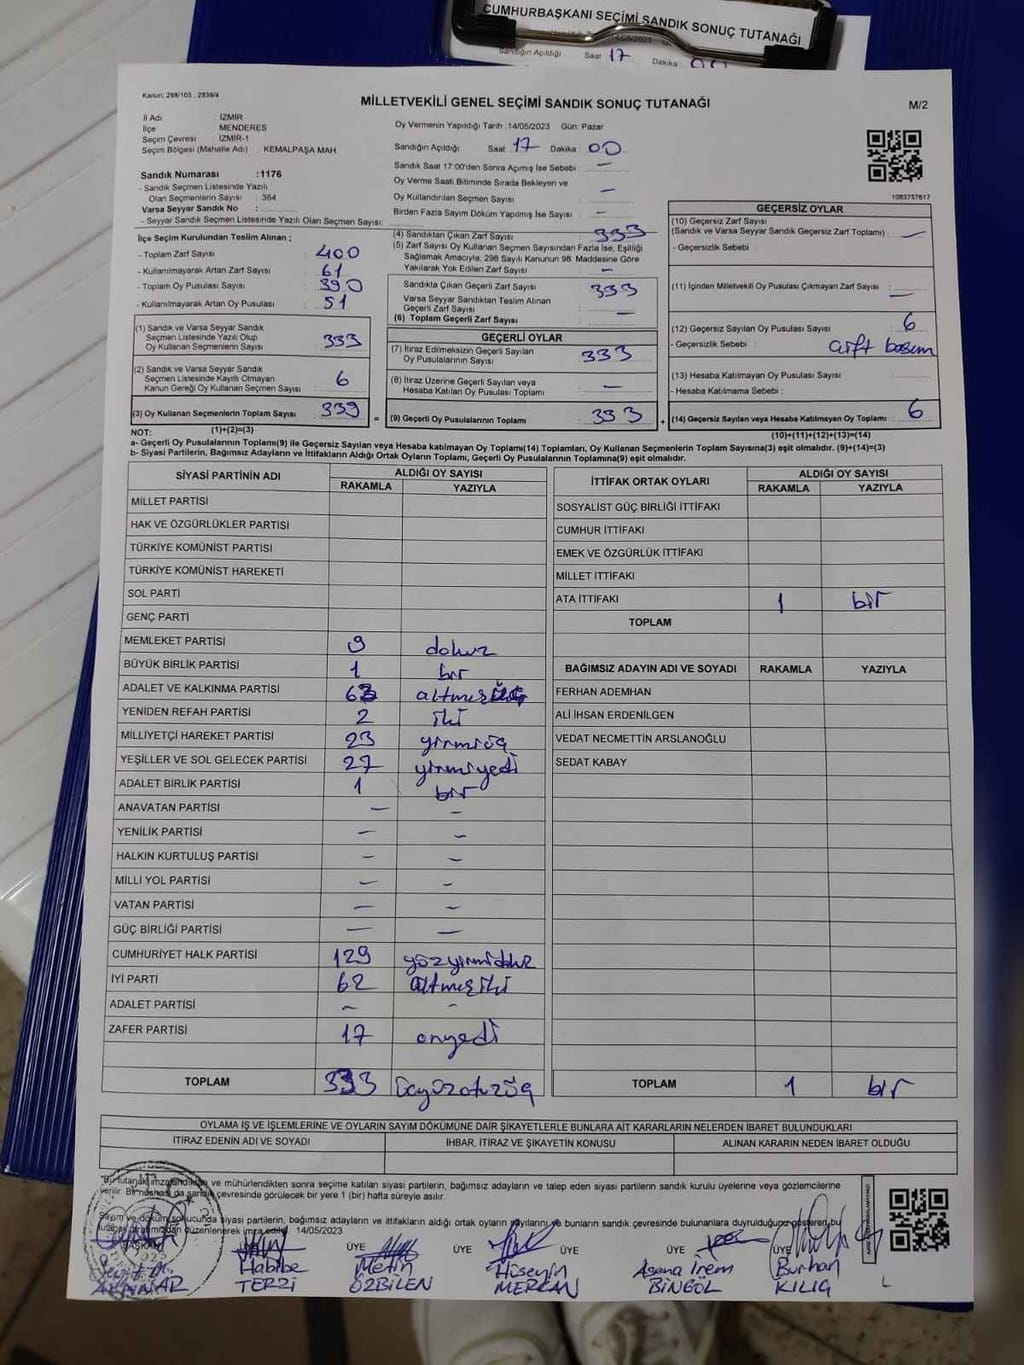 CUMHURBAŞKANI SEÇİMİ SANDIK SONUÇ TUTANAĞI
Sandığın Açıldığı Saat 17 Dakika 00
Kanun: 298/105 , 2839/4
MİLLETVEKİLİ GENEL SEÇİMİ SANDIK SONUÇ TUTANAĞI
M/2
İl Adı : İZMİR
İlçe : MENDERES
Seçim Çevresi : İZMİR-1
Seçim Bölgesi (Mahalle Adı) : KEMALPAŞA MAH
Sandık Numarası :1176
- Sandık Seçmen Listesinde Yazılı
Olan Seçmenlerin Sayısı : 364
Varsa Seyyar Sandık No :
- Seyyar Sandık Seçmen Listesinde Yazılı Olan Seçmen Sayısı:
Oy Vermenin Yapıldığı Tarih :14/05/2023 Gün: Pazar
Sandığın Açıldığı Saat 17 Dakika : 00
Sandık Saat 17.00'den Sonra Açılmış İse Sebebi : —
Oy Verme Saati Bitiminde Sırada Bekleyen ve
Oy Kullandırılan Seçmen Sayısı : —
Birden Fazla Sayım Döküm Yapılmış İse Sayısı : —
1083757617
İlçe Seçim Kurulundan Teslim Alınan ;
- Toplam Zarf Sayısı : 400
- Kullanılmayarak Artan Zarf Sayısı : 61
- Toplam Oy Pusulası Sayısı : 390
- Kullanılmayarak Artan Oy Pusulası : 51
(1) Sandık ve Varsa Seyyar Sandık
Seçmen Listesinde Yazılı Olup
Oy Kullanan Seçmenlerin Sayısı : 333
(2) Sandık ve Varsa Seyyar Sandık
Seçmen Listesinde Kayıtlı Olmayan
Kanun Gereği Oy Kullanan Seçmen Sayısı : 6
(3) Oy Kullanan Seçmenlerin Toplam Sayısı : 339
(1)+(2)=(3)
(4) Sandıktan Çıkan Zarf Sayısı : 333
(5) Zarf Sayısı Oy Kullanan Seçmen Sayısından Fazla İse, Eşitliği
Sağlamak Amacıyla; 298 Sayılı Kanunun 98. Maddesine Göre
Yakılarak Yok Edilen Zarf Sayısı : —
Sandıkta Çıkan Geçerli Zarf Sayısı : 333
Varsa Seyyar Sandıktan Teslim Alınan
Geçerli Zarf Sayısı : —
(6) Toplam Geçerli Zarf Sayısı
GEÇERLİ OYLAR
(7) İtiraz Edilmeksizin Geçerli Sayılan
Oy Pusulalarının Sayısı : 333
(8) İtiraz Üzerine Geçerli Sayılan veya
Hesaba Katılan Oy Pusulası Toplamı : —
= (9) Geçerli Oy Pusulalarının Toplamı : 333
GEÇERSİZ OYLAR
(10) Geçersiz Zarf Sayısı
(Sandık ve Varsa Seyyar Sandık Geçersiz Zarf Toplamı) : —
- Geçersizlik Sebebi :
(11) İçinden Milletvekili Oy Pusulası Çıkmayan Zarf Sayısı : —
(12) Geçersiz Sayılan Oy Pusulası Sayısı : 6
- Geçersizlik Sebebi : çift basım
(13) Hesaba Katılmayan Oy Pusulası Sayısı :
- Hesaba Katılmama Sebebi :
+ (14) Geçersiz Sayılan veya Hesaba Katılmayan Oy Toplamı : 6
(10)+(11)+(12)+(13)=(14)
NOT:
a- Geçerli Oy Pusulalarının Toplamı(9) ile Geçersiz Sayılan veya Hesaba katılmayan Oy Toplamı(14) Toplamları, Oy Kullanan Seçmenlerin Toplam Sayısına(3) eşit olmalıdır. (9)+(14)=(3)
b- Siyasi Partilerin, Bağımsız Adayların ve İttifakların Aldığı Ortak Oyların Toplamı, Geçerli Oy Pusulalarının Toplamına(9) eşit olmalıdır.
SİYASİ PARTİNİN ADI ALDIĞI OY SAYISI
RAKAMLA YAZIYLA
MİLLET PARTİSİ
HAK VE ÖZGÜRLÜKLER PARTİSİ
TÜRKİYE KOMÜNİST PARTİSİ
TÜRKİYE KOMÜNİST HAREKETİ
SOL PARTİ
GENÇ PARTİ
MEMLEKET PARTİSİ 9 dokuz
BÜYÜK BİRLİK PARTİSİ 1 bir
ADALET VE KALKINMA PARTİSİ 63 altmışüç
YENİDEN REFAH PARTİSİ 2 iki
MİLLİYETÇİ HAREKET PARTİSİ 23 yirmiüç
YEŞİLLER VE SOL GELECEK PARTİSİ 27 yirmiyedi
ADALET BİRLİK PARTİSİ 1 bir
ANAVATAN PARTİSİ — —
YENİLİK PARTİSİ — —
HALKIN KURTULUŞ PARTİSİ — —
MİLLİ YOL PARTİSİ — —
VATAN PARTİSİ — —
GÜÇ BİRLİĞİ PARTİSİ — —
CUMHURİYET HALK PARTİSİ 129 yüzyirmidokuz
İYİ PARTİ 62 altmışiki
ADALET PARTİSİ — —
ZAFER PARTİSİ 17 onyedi
TOPLAM 333 üçyüzotuzüç
İTTİFAK ORTAK OYLARI ALDIĞI OY SAYISI
RAKAMLA YAZIYLA
SOSYALİST GÜÇ BİRLİĞİ İTTİFAKI
CUMHUR İTTİFAKI
EMEK VE ÖZGÜRLÜK İTTİFAKI
MİLLET İTTİFAKI
ATA İTTİFAKI 1 bir
TOPLAM
BAĞIMSIZ ADAYIN ADI VE SOYADI RAKAMLA YAZIYLA
FERHAN ADEMHAN
ALİ İHSAN ERDENİLGEN
VEDAT NECMETTİN ARSLANOĞLU
SEDAT KABAY
TOPLAM 1 bir
OYLAMA İŞ VE İŞLEMLERİNE VE OYLARIN SAYIM DÖKÜMÜNE DAİR ŞİKAYETLERLE BUNLARA AİT KARARLARIN NELERDEN İBARET BULUNDUKLARI
İTİRAZ EDENİN ADI VE SOYADI İHBAR, İTİRAZ VE ŞİKAYETİN KONUSU ALINAN KARARIN NEDEN İBARET OLDUĞU
"Bu tutanak imzalandıktan ve mühürlendikten sonra seçime katılan siyasi partilerin, bağımsız adayların ve talep eden siyasi partilerin sandık kurulu üyelerine veya gözlemcilerine
verilir. Bir nüshası da sandık çevresinde görülecek bir yere 1 (bir) hafta süreyle asılır.
Sayım ve döküm sonucunda siyasi partilerin, bağımsız adayların ve ittifakların aldığı ortak oyların sayılarını ve bunların sandık çevresinde bulunanlara duyrulduğunu gösteren bu
tutanak tarafımızdan düzenlenerek imza edildi. 14/05/2023
BAŞKAN ÜYE ÜYE ÜYE ÜYE ÜYE
AKPINAR
Habibe TERZİ
Metin ÖZBİLEN
Hüseyin MERCAN
Asena İrem BİNGÖL
Burhan KILIÇ